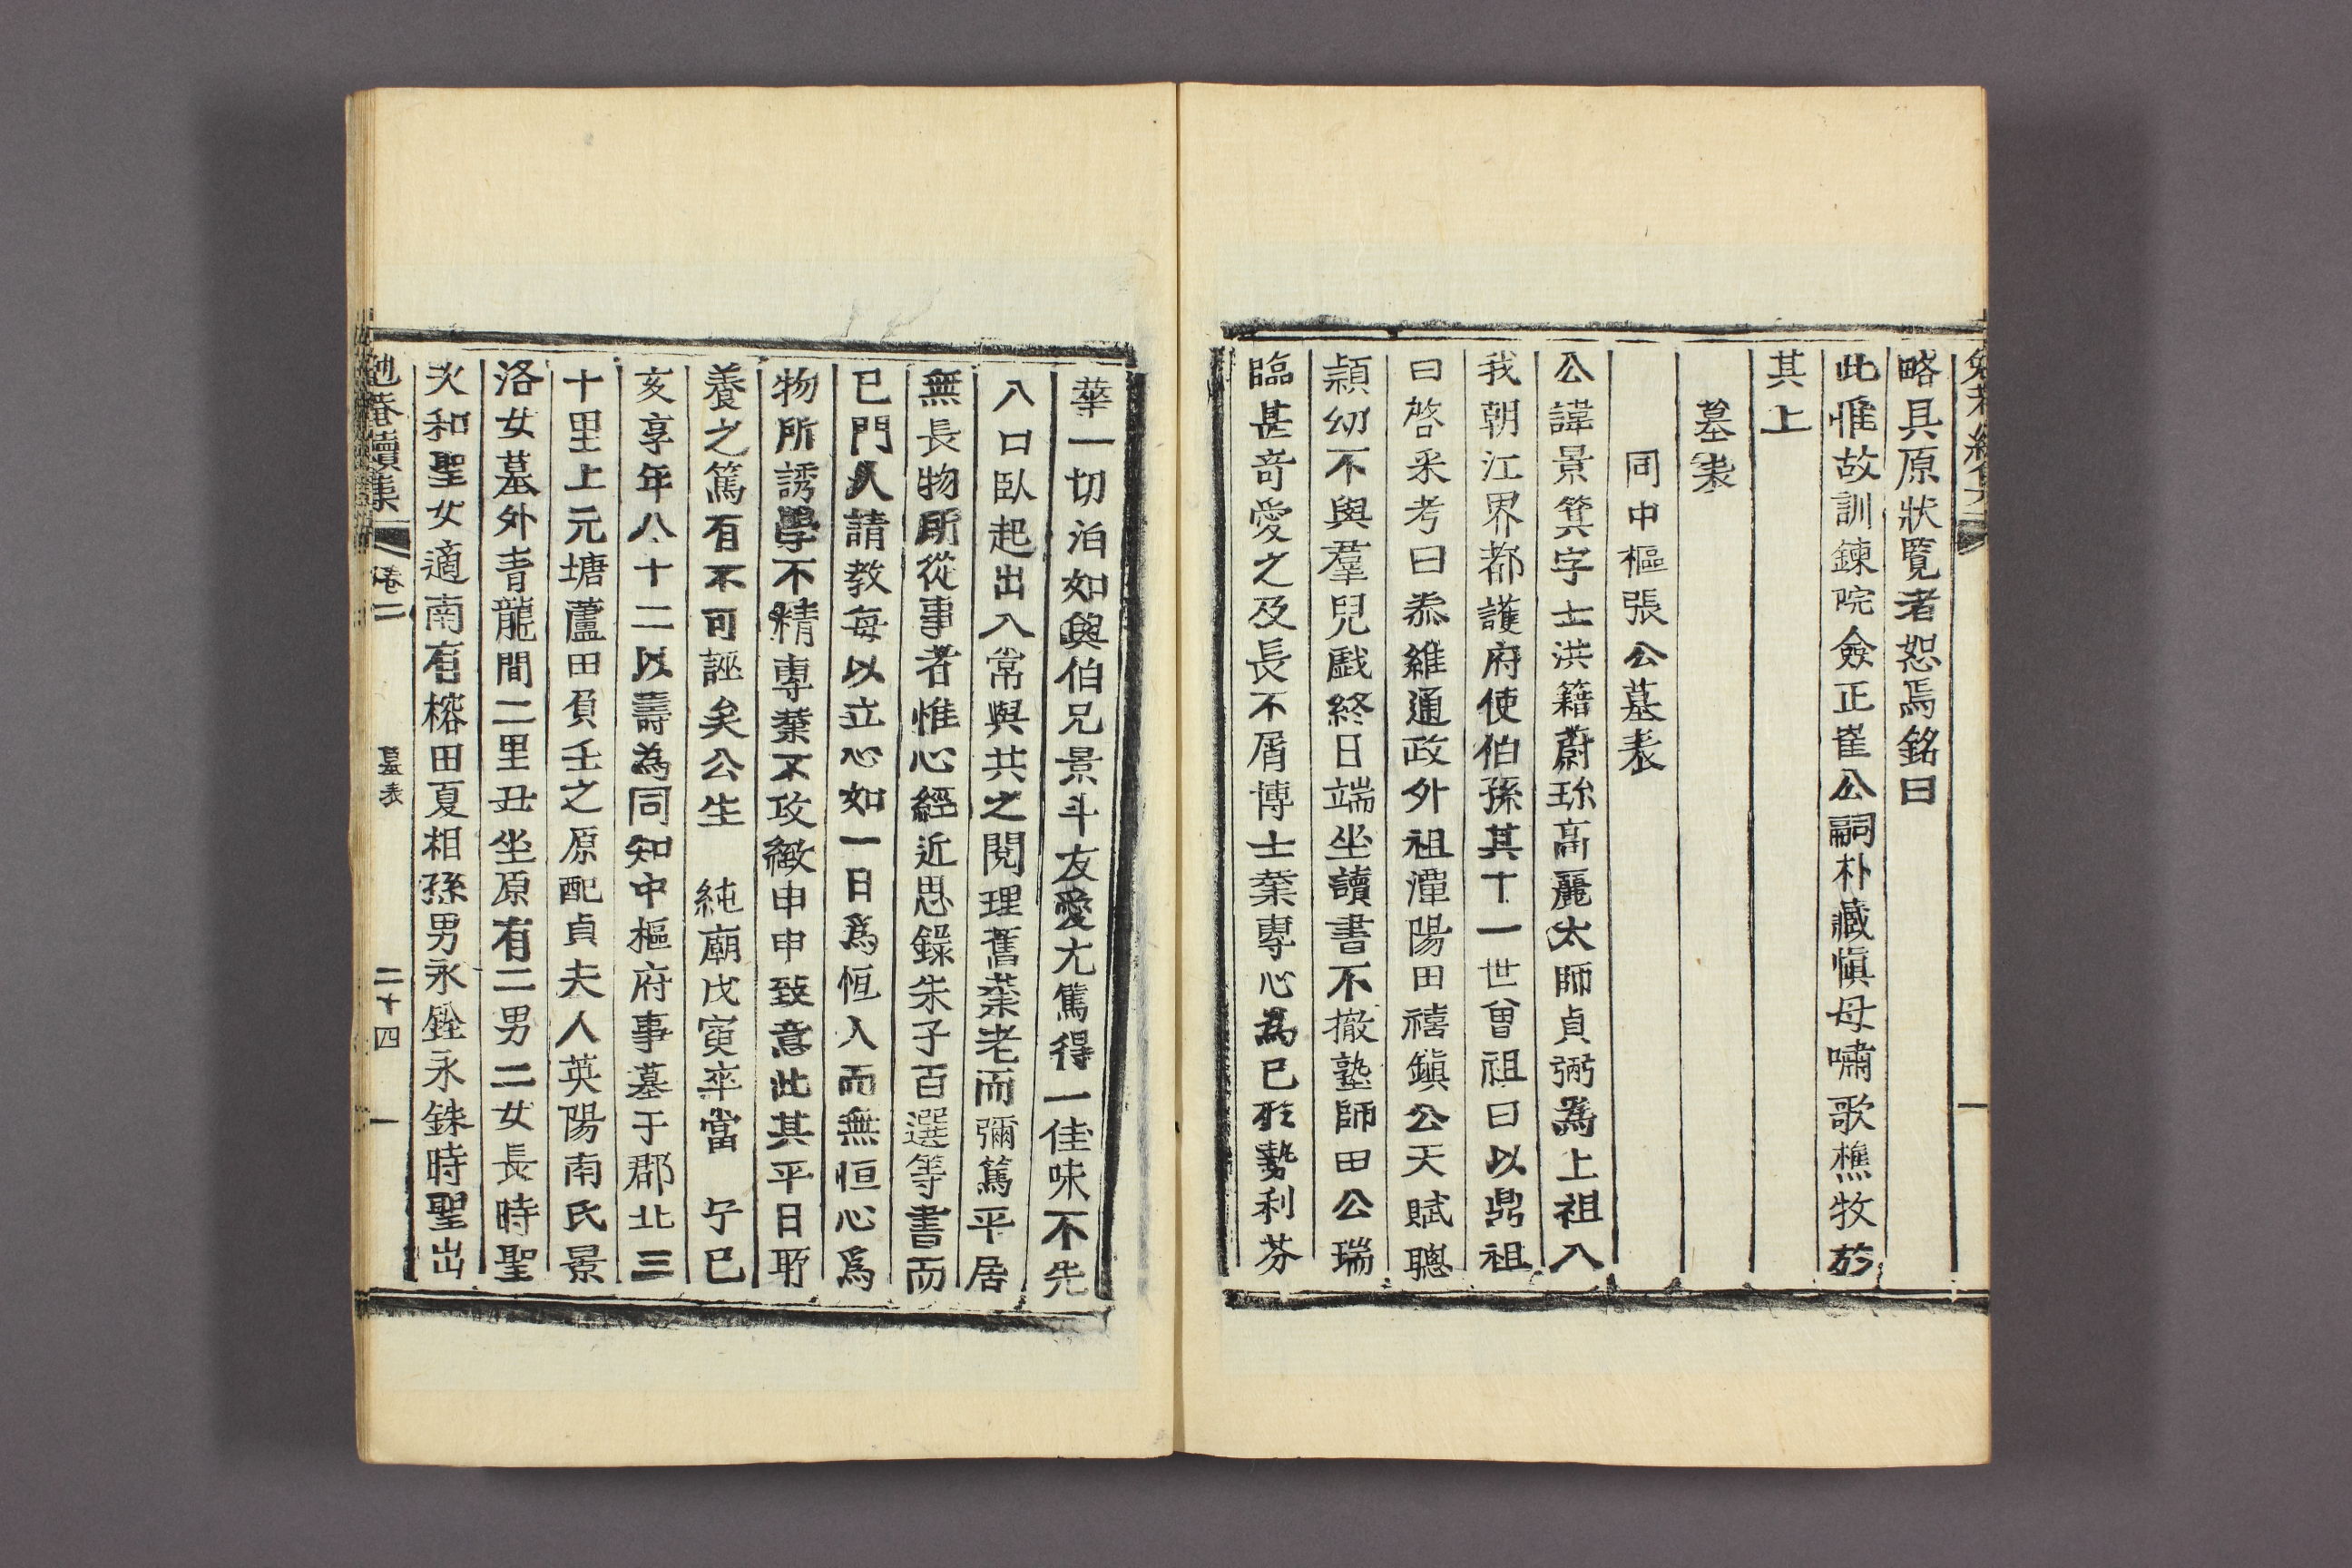 略具原狀覽者恕焉銘曰
此惟故訓鍊院僉正崔公嗣朴藏愼母嘯歌樵牧於
其上
墓表
同中樞張公墓表
公諱景箕字士洪籍蔚珍高麗太師貞弼為上祖入
我朝江界都護府使伯孫其十一世曾祖曰以鼎祖
曰啓采考曰泰維通政外祖潭陽田禧鎭公天賦聰
頴幼不與羣兒戱終日端坐讀書不撤塾師田公瑞
臨甚竒愛之及長不屑博士業專心為已於勢利芬
華一切泊如與伯兄景斗友愛尤篤得一佳味不先
入口臥起出入常與共之閱理舊業老而彌篤平居
無長物所從事者惟心經近思錄朱子百選等書而
已門人請教每以立心如一日爲恒入而無恒心爲
物所誘學不精專業不攻緻申申致意此其平日所
養之篤有不可誣矣公生　純廟戊寅卒當　宁已
亥享年八十二以壽為同知中樞府事墓于郡北三
十里上元塘蘆田負壬之原配貞夫人英陽南氏景
洛女墓外青龍間二里丑坐原有二男二女長時聖
次和聖女適南有榕田夏相孫男永銓永銖時聖出
勉菴續集 卷二 墓表 二十四